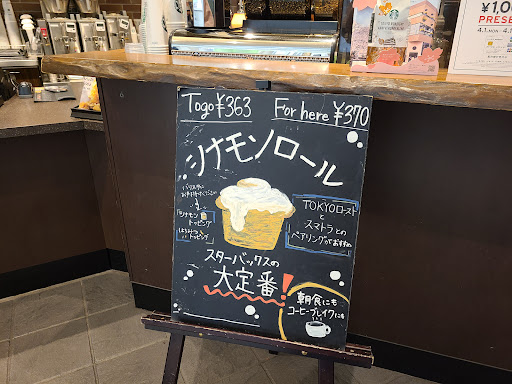 Togo ¥363 For here ¥370
シナモンロール
シナモン
トッピング
はちみつ
トッピング
TOKYOロースト
と
スマトラとの
ペアリングがおすすめ
スターバックスの
大定番!
朝食にも
コーヒーブレイクにも
¥1,0
PRESE